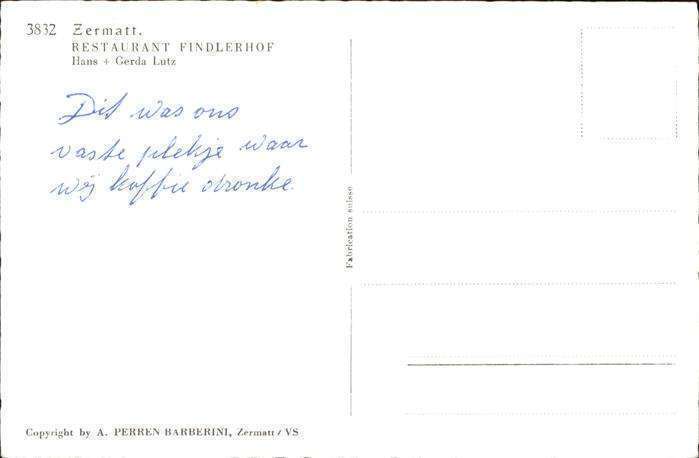 3832 Zermatt.
RESTAURANT FINDLERHOF
Hans + Gerda Lutz
Dit was ons
vaste plekje waar
wij koffie dronke.
Fabrication suisse
Copyright by A. PERREN BARBERINI, Zermatt / VS